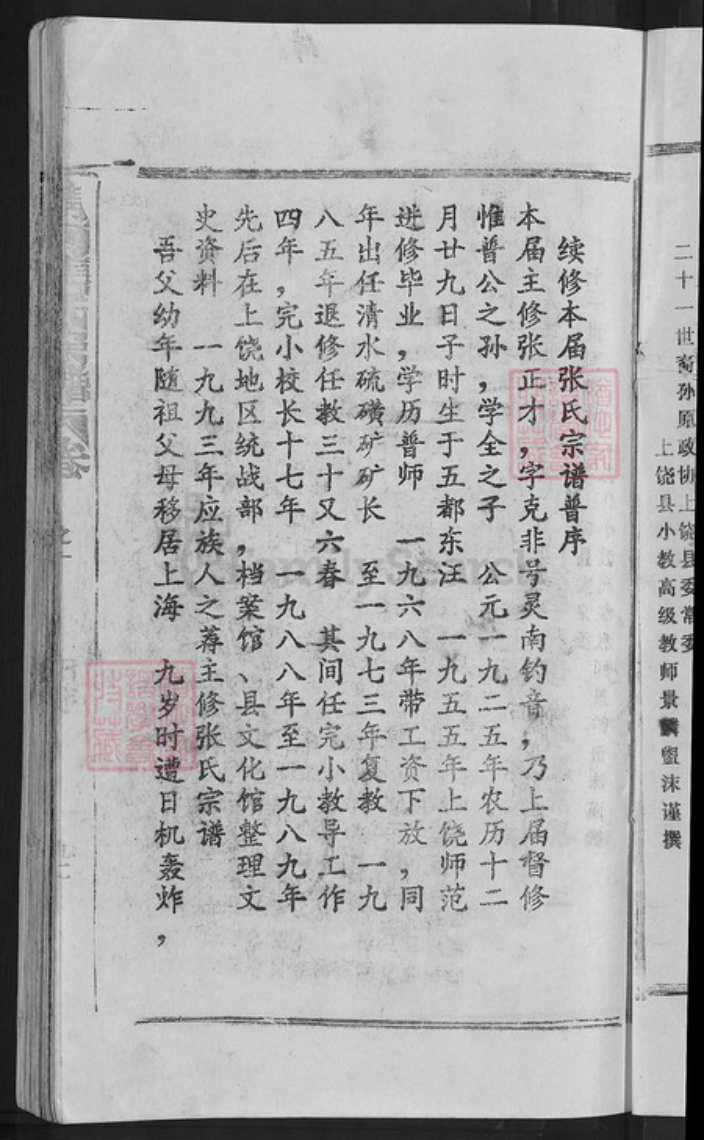 二十一世裔孙原政协上饶县委常委
上饶县小教高级教师景麟盥沫谨撰
续修本届张氏宗谱普序
本届主修张正才，字克非号灵南钓音，乃上届督修
惟普公之孙，学全之子 公元一九二五年农历十二
月廿九日子时生于五都东汪 一九五五年上饶师范
进修毕业，学历普师 一九六八年带工资下放，同
年出任清水硫磺矿矿长 至一九七三年复教 一九
八五年退修任教三十又六春 其间任完小教导工作
四年，完小校长十七年 一九八八年至一九八九年
先后在上饶地区统战部，档案馆、县文化馆整理文
史资料 一九九三年应族人之荐主修张氏宗谱
吾父幼年随祖父母移居上海 九岁时遭日机轰炸，